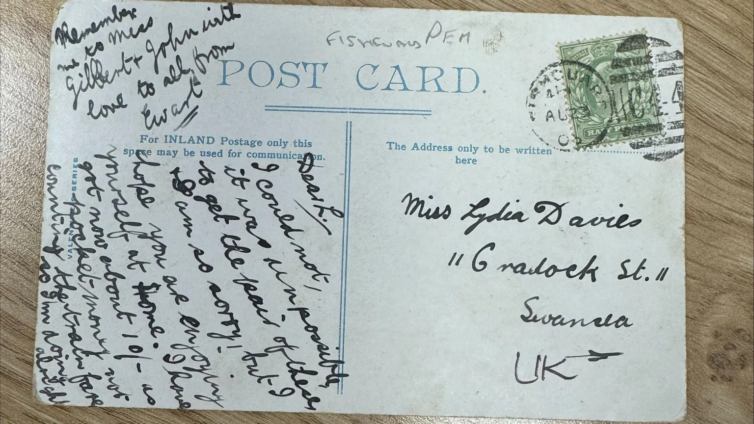 Remember
me to Miss
Gilbert + John with
love to all from
Ewart
FISHGUARD PEM
POST CARD.
For INLAND Postage only this
space may be used for communication.
The Address only to be written
here
Dear L,
I could not,
it was impossible,
to get the pair of these,
& I am so sorry! but I
hope you are enjoying
yourself at Home. I have
got now about 10/- as
pocket money not
counting the train fare
so I'm doing
alright
Miss Lydia Davies
"Cradock St."
Swansea
UK
FISHGUARD
AU 3
SERIES